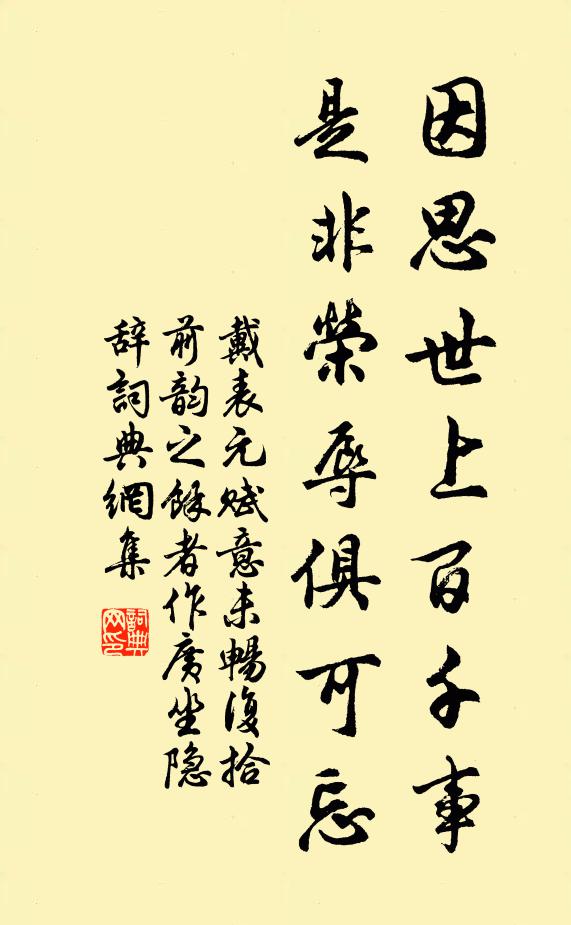 因思世上百千事
是非榮辱俱可忘
戴表元賦意未暢復拾
前韵之餘者作廣坐隐
辞詞典網集
詞典
网印